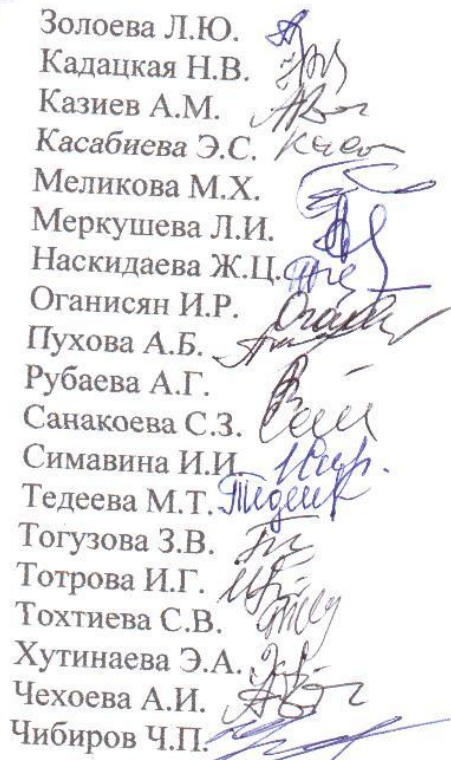 Золоева Л.Ю.
Кадацкая Н.В.
Казиев А.М.
Касабиева Э.С.
Меликова М.Х.
Меркушева Л.И.
Наскидаева Ж.Ц.
Оганисян И.Р.
Пухова А.Б.
Рубаева А.Г.
Санакоева С.З.
Симавина И.И.
Тедеева М.Т.
Тогузова З.В.
Тотрова И.Г.
Тохтиева С.В.
Хутинаева Э.А.
Чехоева А.И.
Чибиров Ч.П.